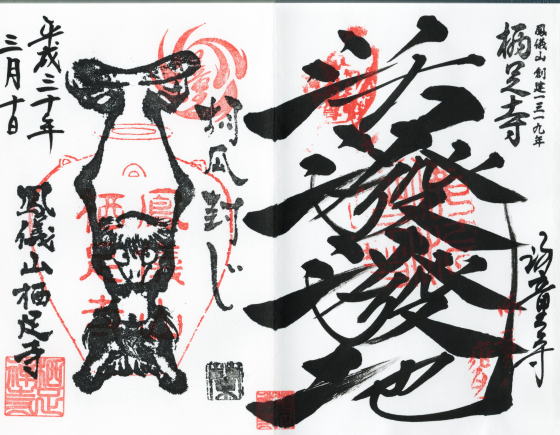 鳳儀山 創建一三一九年
栖足寺
活潑潑地
胡瓜封じ
平成三十年
三月十日
鳳儀山栖足寺